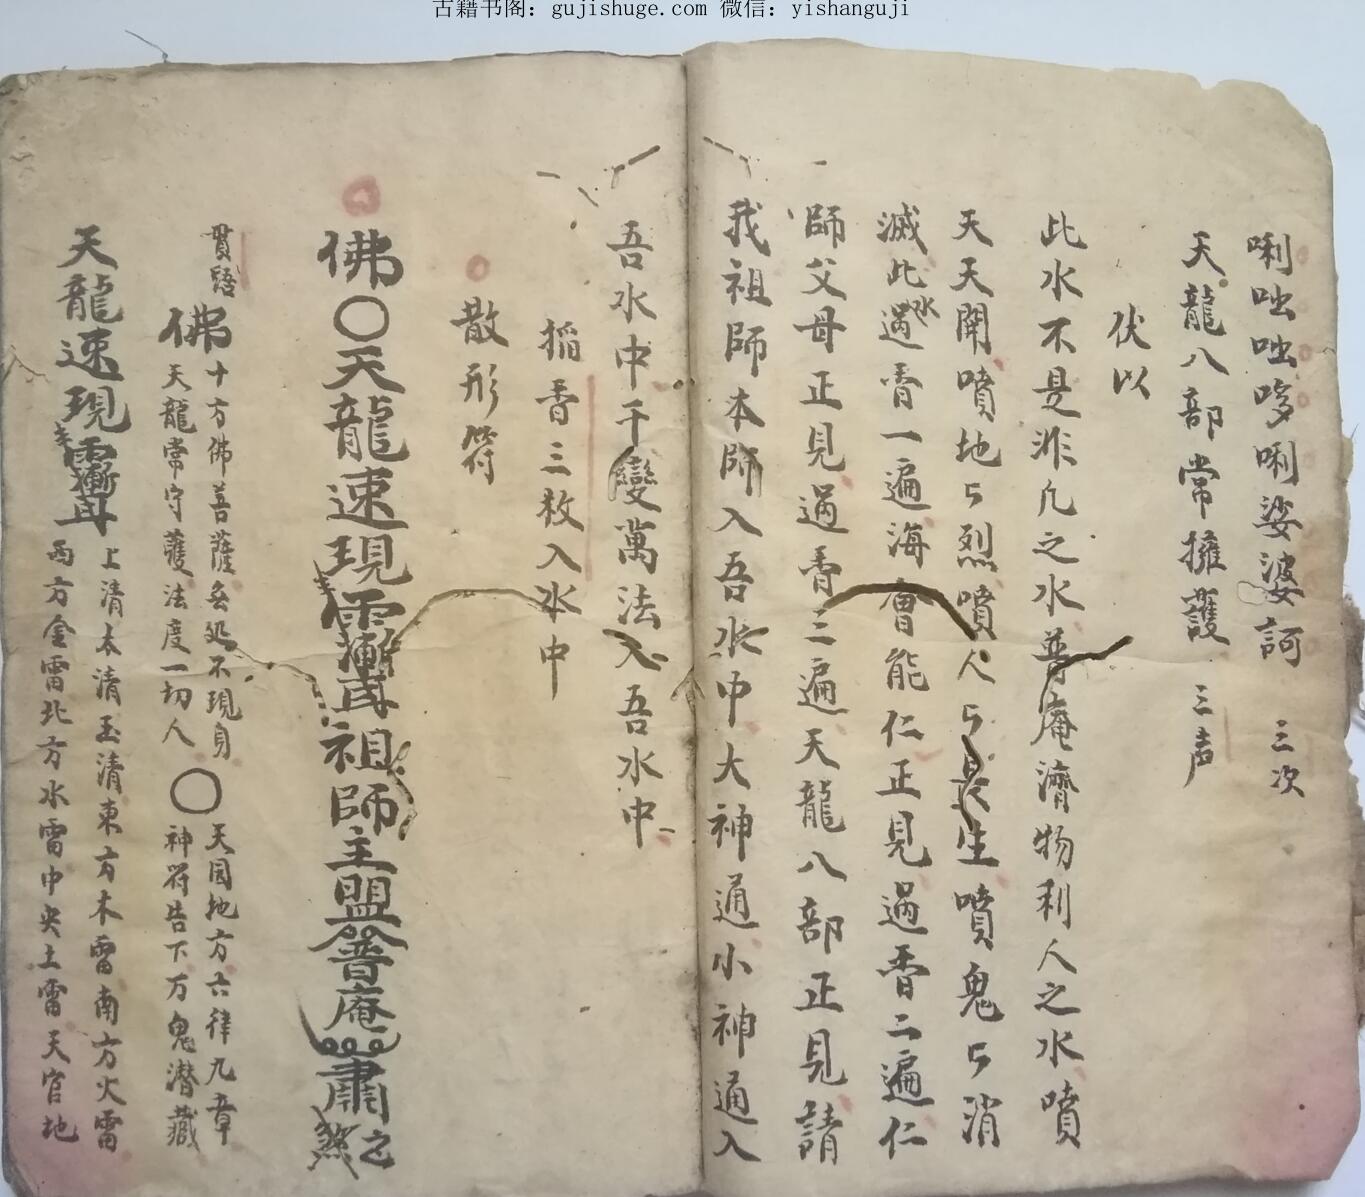 古籍书阁：gujishuge.com 微信：yishanguji
唎咄咄哆唎娑婆訶 三次
天龍八部常擁護 三声
伏以
此水不是非凡之水普庵濟物利人之水噴
天天開噴地ㄣ烈噴人ㄣ長生噴鬼ㄣ消
滅此水遇香一遍海會能仁正見遇香二遍仁
師父母正見遇香三遍天龍八部正見請
我祖師本師入吾水中大神通小神通入
吾水中千變萬法入吾水中
稻香三枚入水中
散形符
佛〇天龍速現祖師主盟普庵肅之煞
貫
佛十方佛菩薩無处不現身
天龍常守護法度一切人
〇天园地方六律九章
神符告下万鬼潜藏
天龍速現
上清太清玉清東方木雷南方火雷
西方金雷北方水雷中央土雷天官地